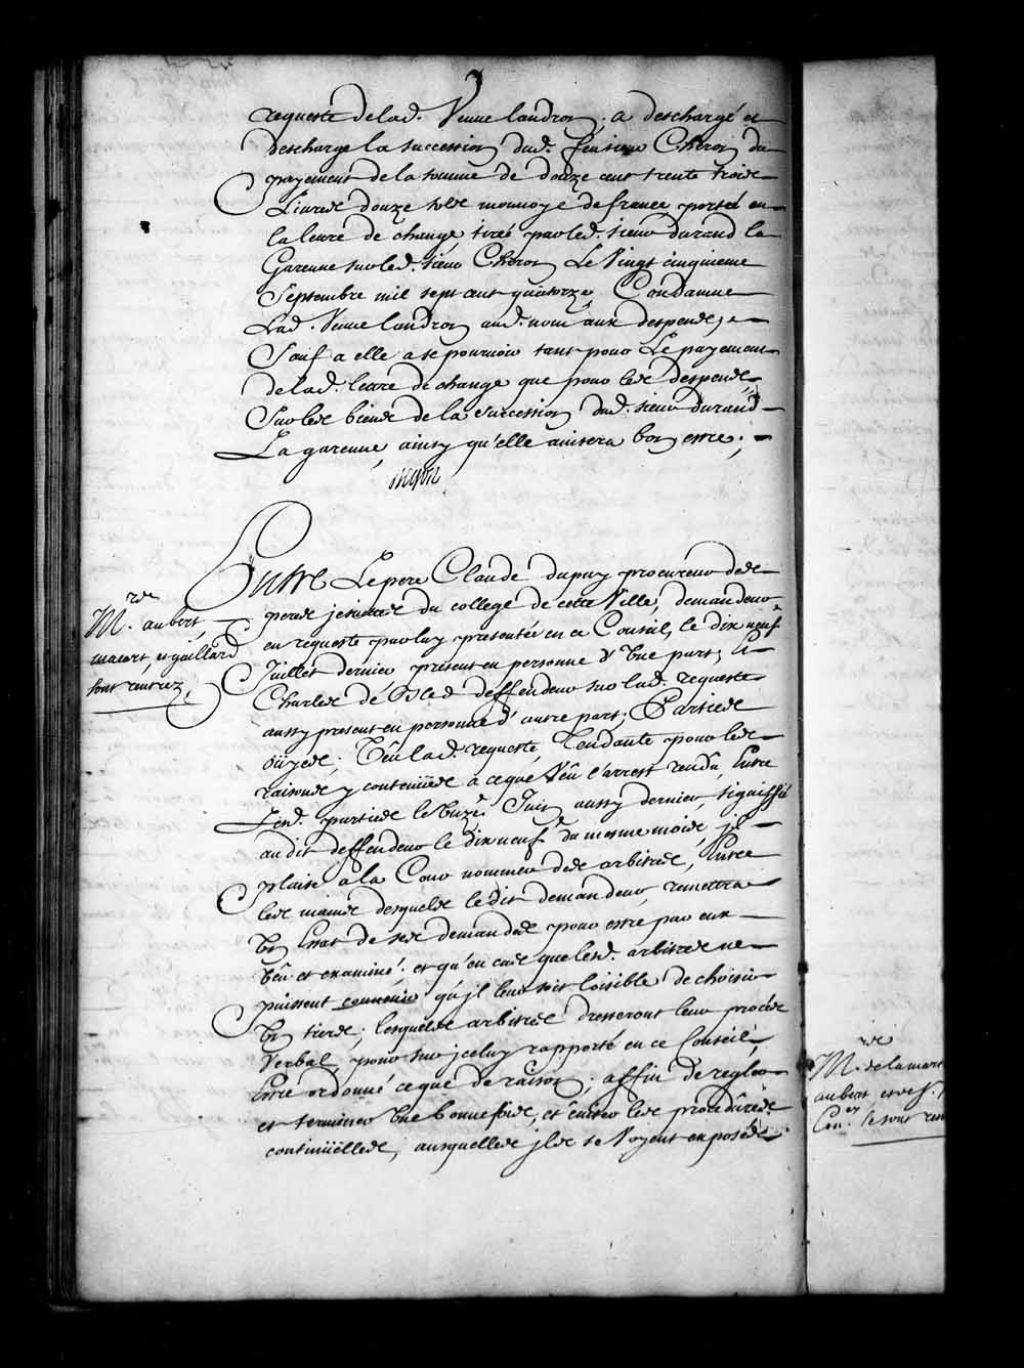 requeste de lad. Veuve landron, a deschargé et
descharge la succession dud. feu sieur Cheron du
payement de la somme de douze cent trente trois
Livres douze sols monnoye de france portée en
la lettre de change tirée par led. sieur durand la
Garenne sur led. sieur Cheron Le Vingt cinquieme
Septembre mil sept cent quatorze, Condamne
Lad. Veuve landron aud. nom aux despens,
Sauf a elle a se pourvoir tant pour Le payement
de lad. lettre de change que pour les despens,
Sur les biens de la succession dud. sieur durand
La garenne, ainsy qu'elle avisera bon estre.
Entre Le pere Claude dupuy procureur des
peres jesuites du college de cette Ville, demandeur
en requeste par luy presentée en ce Conseil, le dix neuf
Juillet dernier present en personne d'Une part; Et
Charles de deffendeur sur lad. requeste
aussy present en personne d'autre part; Parties
oüyes; Vëu lad. requeste, Tendante pour les
raisons y contenües a ce que Vëu l'arrest rendu Entre
Lesd. parties le Juin aussy dernier, signiffié
audit deffendeur le dix neuf du mesme mois, jl
plaise a la Cour nommer des arbitres, Entre
les mains desquels le dit demandeur remettra
Un Estat de ses demandes pour estre par eux
Vëu et examiné; et qu'en cas que lesd. arbitres ne
puissent convenir qu'jl leur soit loisible de choisir
Un tiers; lesquels arbitres dresseront leur procés
Verbal, pour sur jceluy rapporté en ce Conseil,
Estre ordonné ce que de raison; affin de regler
et terminer Une bonne fois, et éviter les procedures
continüelles, ausquelles jls se Voyent exposés
Mrs. aubert,
macart, et gaillard
sont rentrez
M. de la mart
aubert et
Con.ers se sont